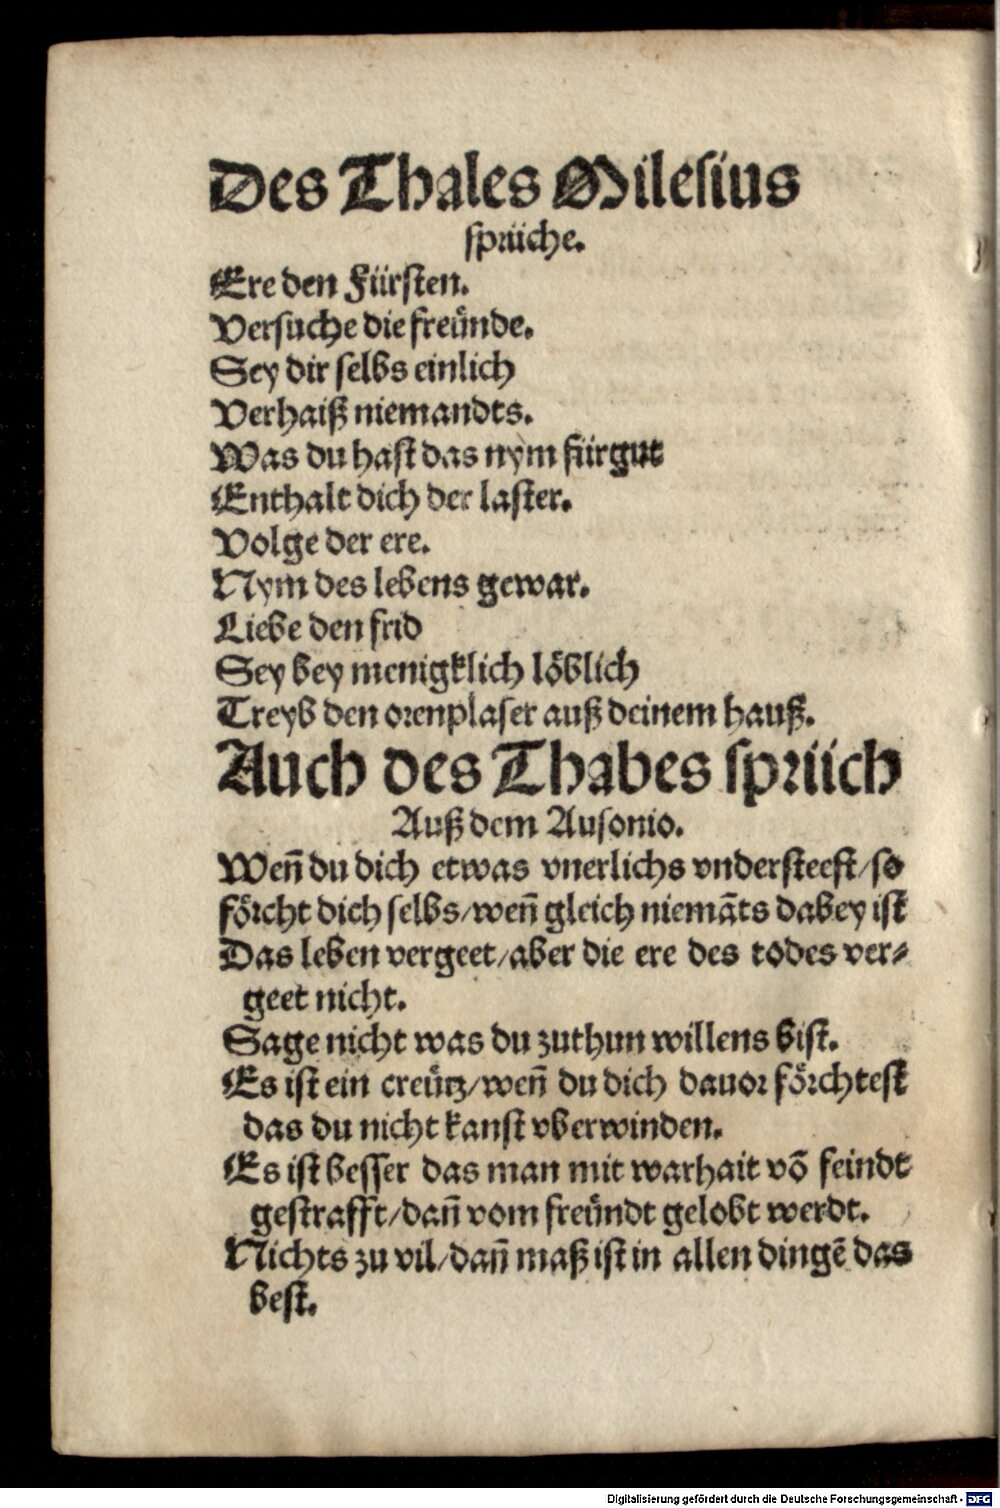 Des Thales Milesius
sprüche.
Ere den Fürsten.
Versuche die freünde.
Sey dir selbs einlich
Verhaiß niemandts.
Was du hast das nym für gut
Enthalt dich der laster.
Volge der ere.
Nym des lebens gewar.
Liebe den frid
Sey bey menigklich löblich
Treyb den orenplaser auß deinem hauß.
Auch des Thabes sprüch
Auß dem Ausonio.
Weñ du dich etwas vnerlichs vndersteest/so
förcht dich selbs/weñ gleich niemãts dabey ist
Das leben vergeet/aber die ere des todes ver⸗
geet nicht.
Sage nicht was du zuthun willens bist.
Es ist ein creütz/weñ du dich dauor förchtest
das du nicht kanst vberwinden.
Es ist besser das man mit warhait võ feindt
gestrafft/dañ vom freündt gelobt werdt.
Nichts zu vil/dañ maß ist in allen dingẽ das
best.
Digitalisierung gefördert durch die Deutsche Forschungsgemeinschaft - DFG